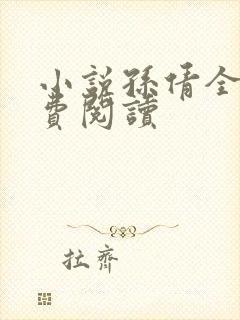 小説孫倩全
費閱讀
拉齊